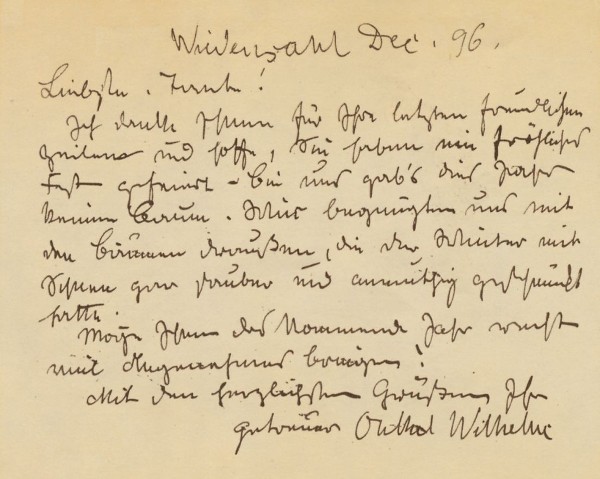 Wiedensahl Dec. 96.
Liebste Tante!
Ich danke Ihnen für Ihre letzten freundlichen
Zeilen und hoffe, Sie haben ein fröhliches
Fest gefeiert – Bei uns gab's dies Jahr
keinen Baum. Wir begnügten uns mit
den Bäumen draußen, die der Winter mit
Schnee gar sauber und anmuthig geschmückt
hatte.
Möge Ihnen das kommende Jahr recht
viel Angenehmes bringen!
Mit den herzlichsten Grüßen Ihr
getreuer Onkel Wilhelm